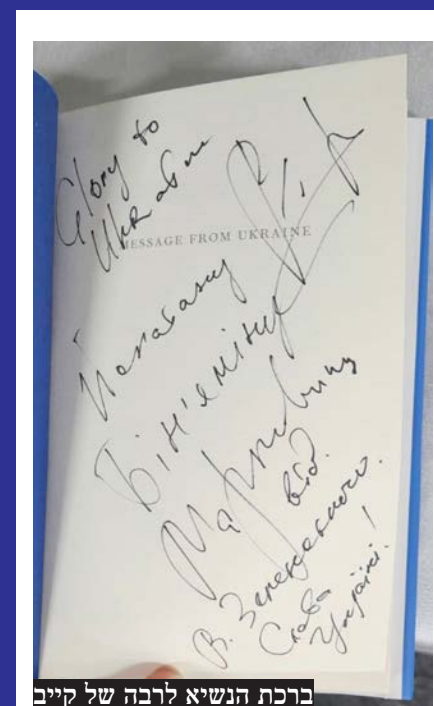 Glory to
Ukraine
MESSAGE FROM UKRAINE
Йонатану
Бін'яміну
Марковичу
від
В. Зеленського.
Слава
Україні!
ברכת הנשיא לרבה של קייב